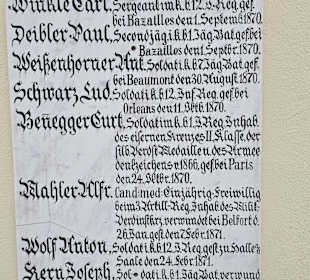 Winkle Carl, Sergeant im k. 12. J. Reg. gef.
bei Bazailles den 1. Septemb. 1870.
Deibler Paul, Secondjäg. i. k. 1. Jäg. Bat. gef. bei
Bazailles den 1. Septbr. 1870.
Weißenhorner Ant. Soldat i. k. 7. Jäg. Bat. gef.
bei Beaumont den 30. August 1870.
Schwarz Lud. Soldat i. k. 12. Inf. Reg. gef. bei
Orleans den 11. Oktb. 1870.
Benegger Curt, Soldat im k. 3. J. Reg. Inhab.
des eisernen Kreuzes II. Klasse, der
silb. Verdst. Medaille u. des Armee
denkzeichens v. 1866, gef. bei Paris
den 24. Oktbr. 1870.
Mahler Alfr. Cand. med. Einjährig-Freiwillig
beim 3. Artill. Reg. Inhab. des Milit.
Verdinstkrz. verwundet bei Belfort d.
26. Jan. gest. den 7. Febr. 1871.
Wolf Anton, Soldat i. k. 12. J. Reg. gest. zu Halle a.
Saale den 24. Febr. 1871.
Kern Joseph, Soldat i. k. 1. Jäg. Bat. verwund